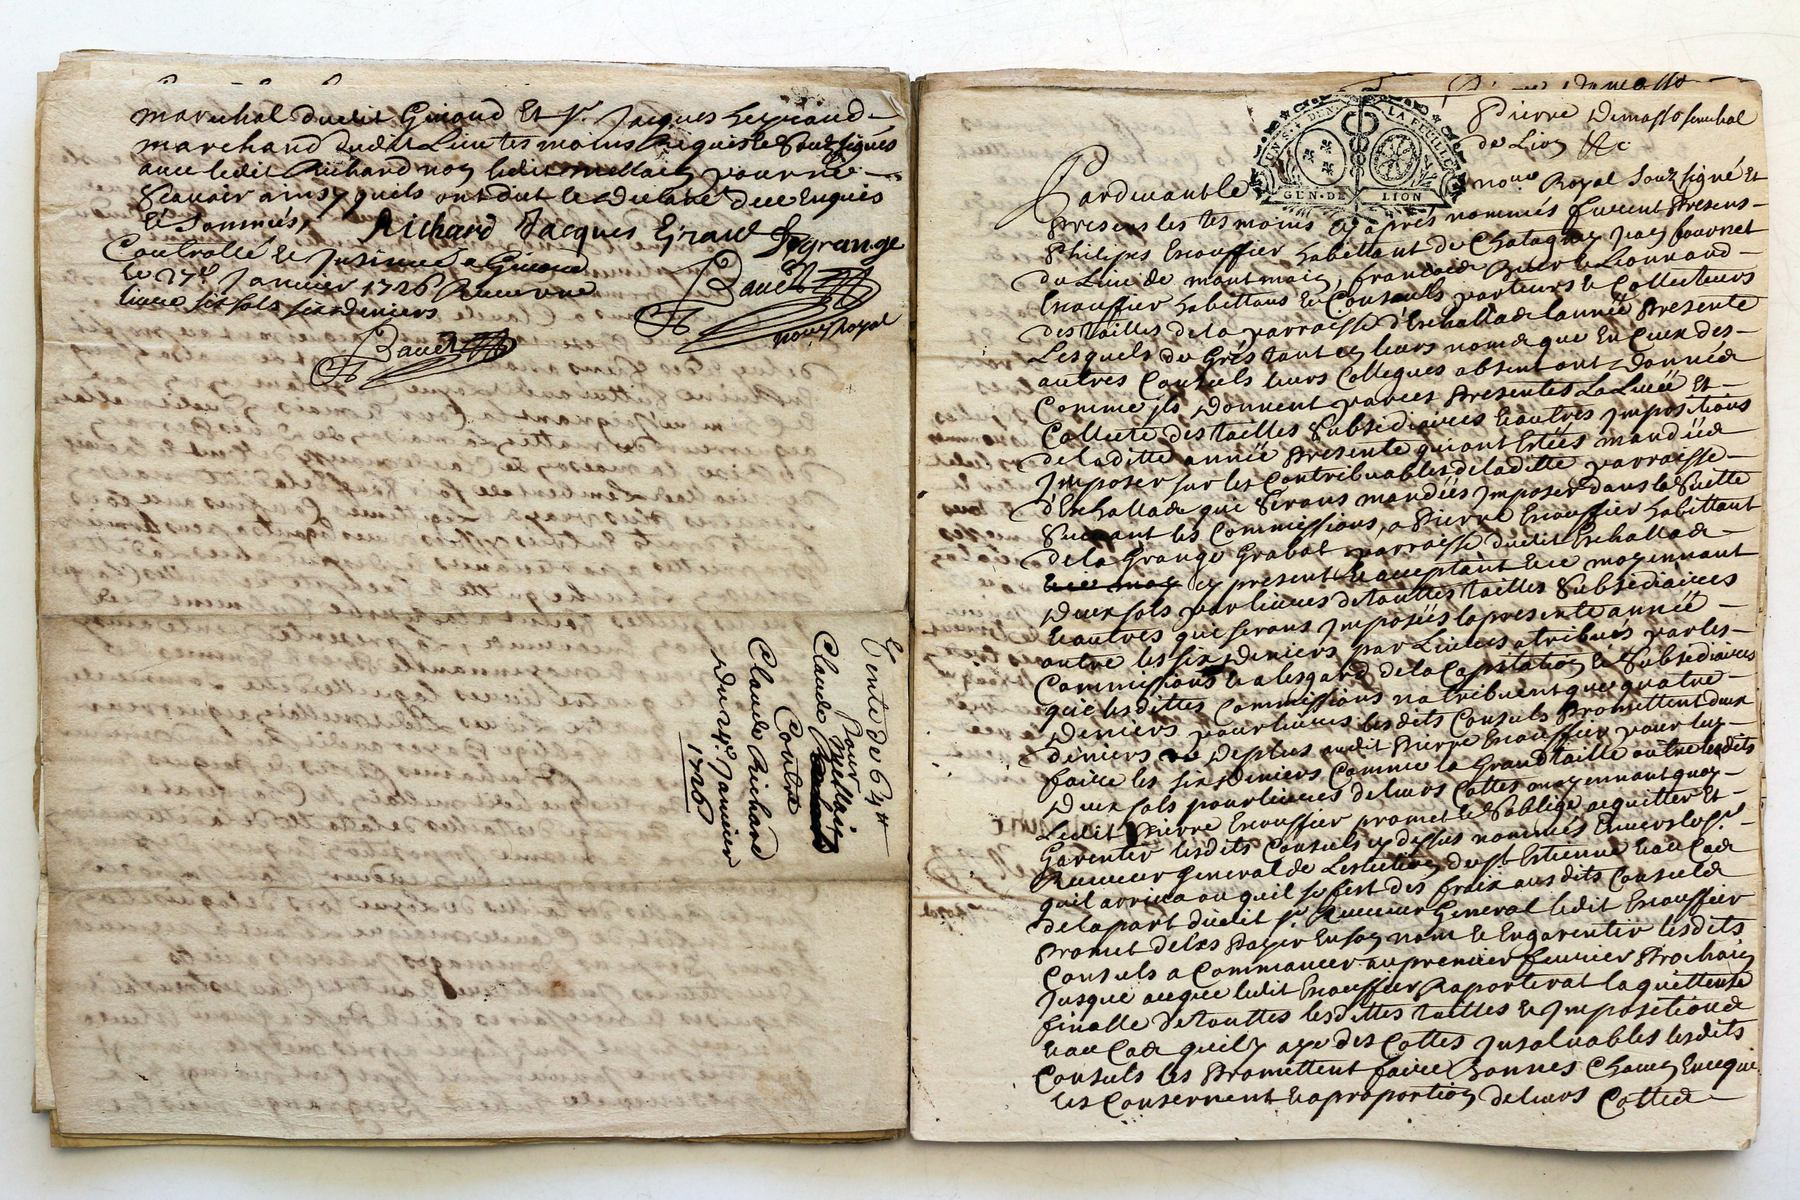 marechal dudit Givord Et Sr Jacques Legrand
marchand dudit Lieu tesmoins Requis & Soubsignés
avec ledit Richard non ledit mellait pour ne
Scavoir ainsy quils ont dit & declaré de ce Enquis
& Sommés,
Richard Jacques Giraud Legrange
Controllé & Insinué a Givord
le 27e Janvier 1726 Receu une
livre six sols six deniers
Baudt
Baudt
nore Royal
Vente de 64 ₶
pour
Claude Mellait
Contre
Claude Richard
Du 24e Janvier
1726
Pierre Demasso senechal
de Lion &c
GEN. DE LION
Pardevant le nore Royal Souzsigné Et
Presens les tesmoins cy apres nommés furent Presens
Philipes Encoffier habittant de Chatagnay
du Lieu de montmain, francois
Encoffier habittans & Consuls porteurs & Collecteurs
des tailles de la parroisse d'Echallad l'année Presente
Lesquels de Gres tant en leurs noms que En Ceux des
autres Consuls leurs Collegues absent ont Donnée
Comme jls Donnent par ces Presentes La Liueé Et
Collecte des tailles Subsediaires & autres Jmpositions
de la ditte année Presente qui ont Estées mandées
Jmposer sur les Contribuables de la ditte parroisse
d'Echallad qui Serons mandées Jmposer dans la Suitte
Suivant les Commissions, a Pierre Encoffier habittant
de la Grange Grabot parroisse dudit Echallad
cy present & acceptant & ce moyennant
Deux sols par liures de touttes tailles Subsediaires
& autres qui serons Jmposées la presente année
outre les six Deniers par Liures atribués par les
Commissions & a lesgard de la Capitation & Subsediaires
que lesdittes Commissions natribuent que quatre
Deniers pour liures lesdits Consuls Promettent deux
deniers de plus audit Pierre Encoffier pour luy
faire les six Deniers Comme la Grand taille outre lesdits
Deux sols pour liures de leurs Cottes moyennant quoy
Ledit Pierre Encoffier promet & soblige acquitter Et
Garentir lesdits Consuls cy dessus nommés Envers le Sr
Receveur general de Lelection de St Estienne & au Cas
quil arriva ou quil se fest des fraix ausdits Consuls
de la part dudit Sr Receveur General ledit Encoffier
Promet de les Payer En son nom & En garentir lesdits
Consuls a Commancer au premier feuvrier Prochain
Jusque a ce que ledit Encoffier Raporterat la quittense
finalle de touttes lesdittes tailles & Jmpositions
& au Cas quil y aye des Cottes Jnsoluables lesdits
Consuls les Promettent faire Bonnes Chacun En ce que
les Conserrnent & a proportion de leurs Cottes